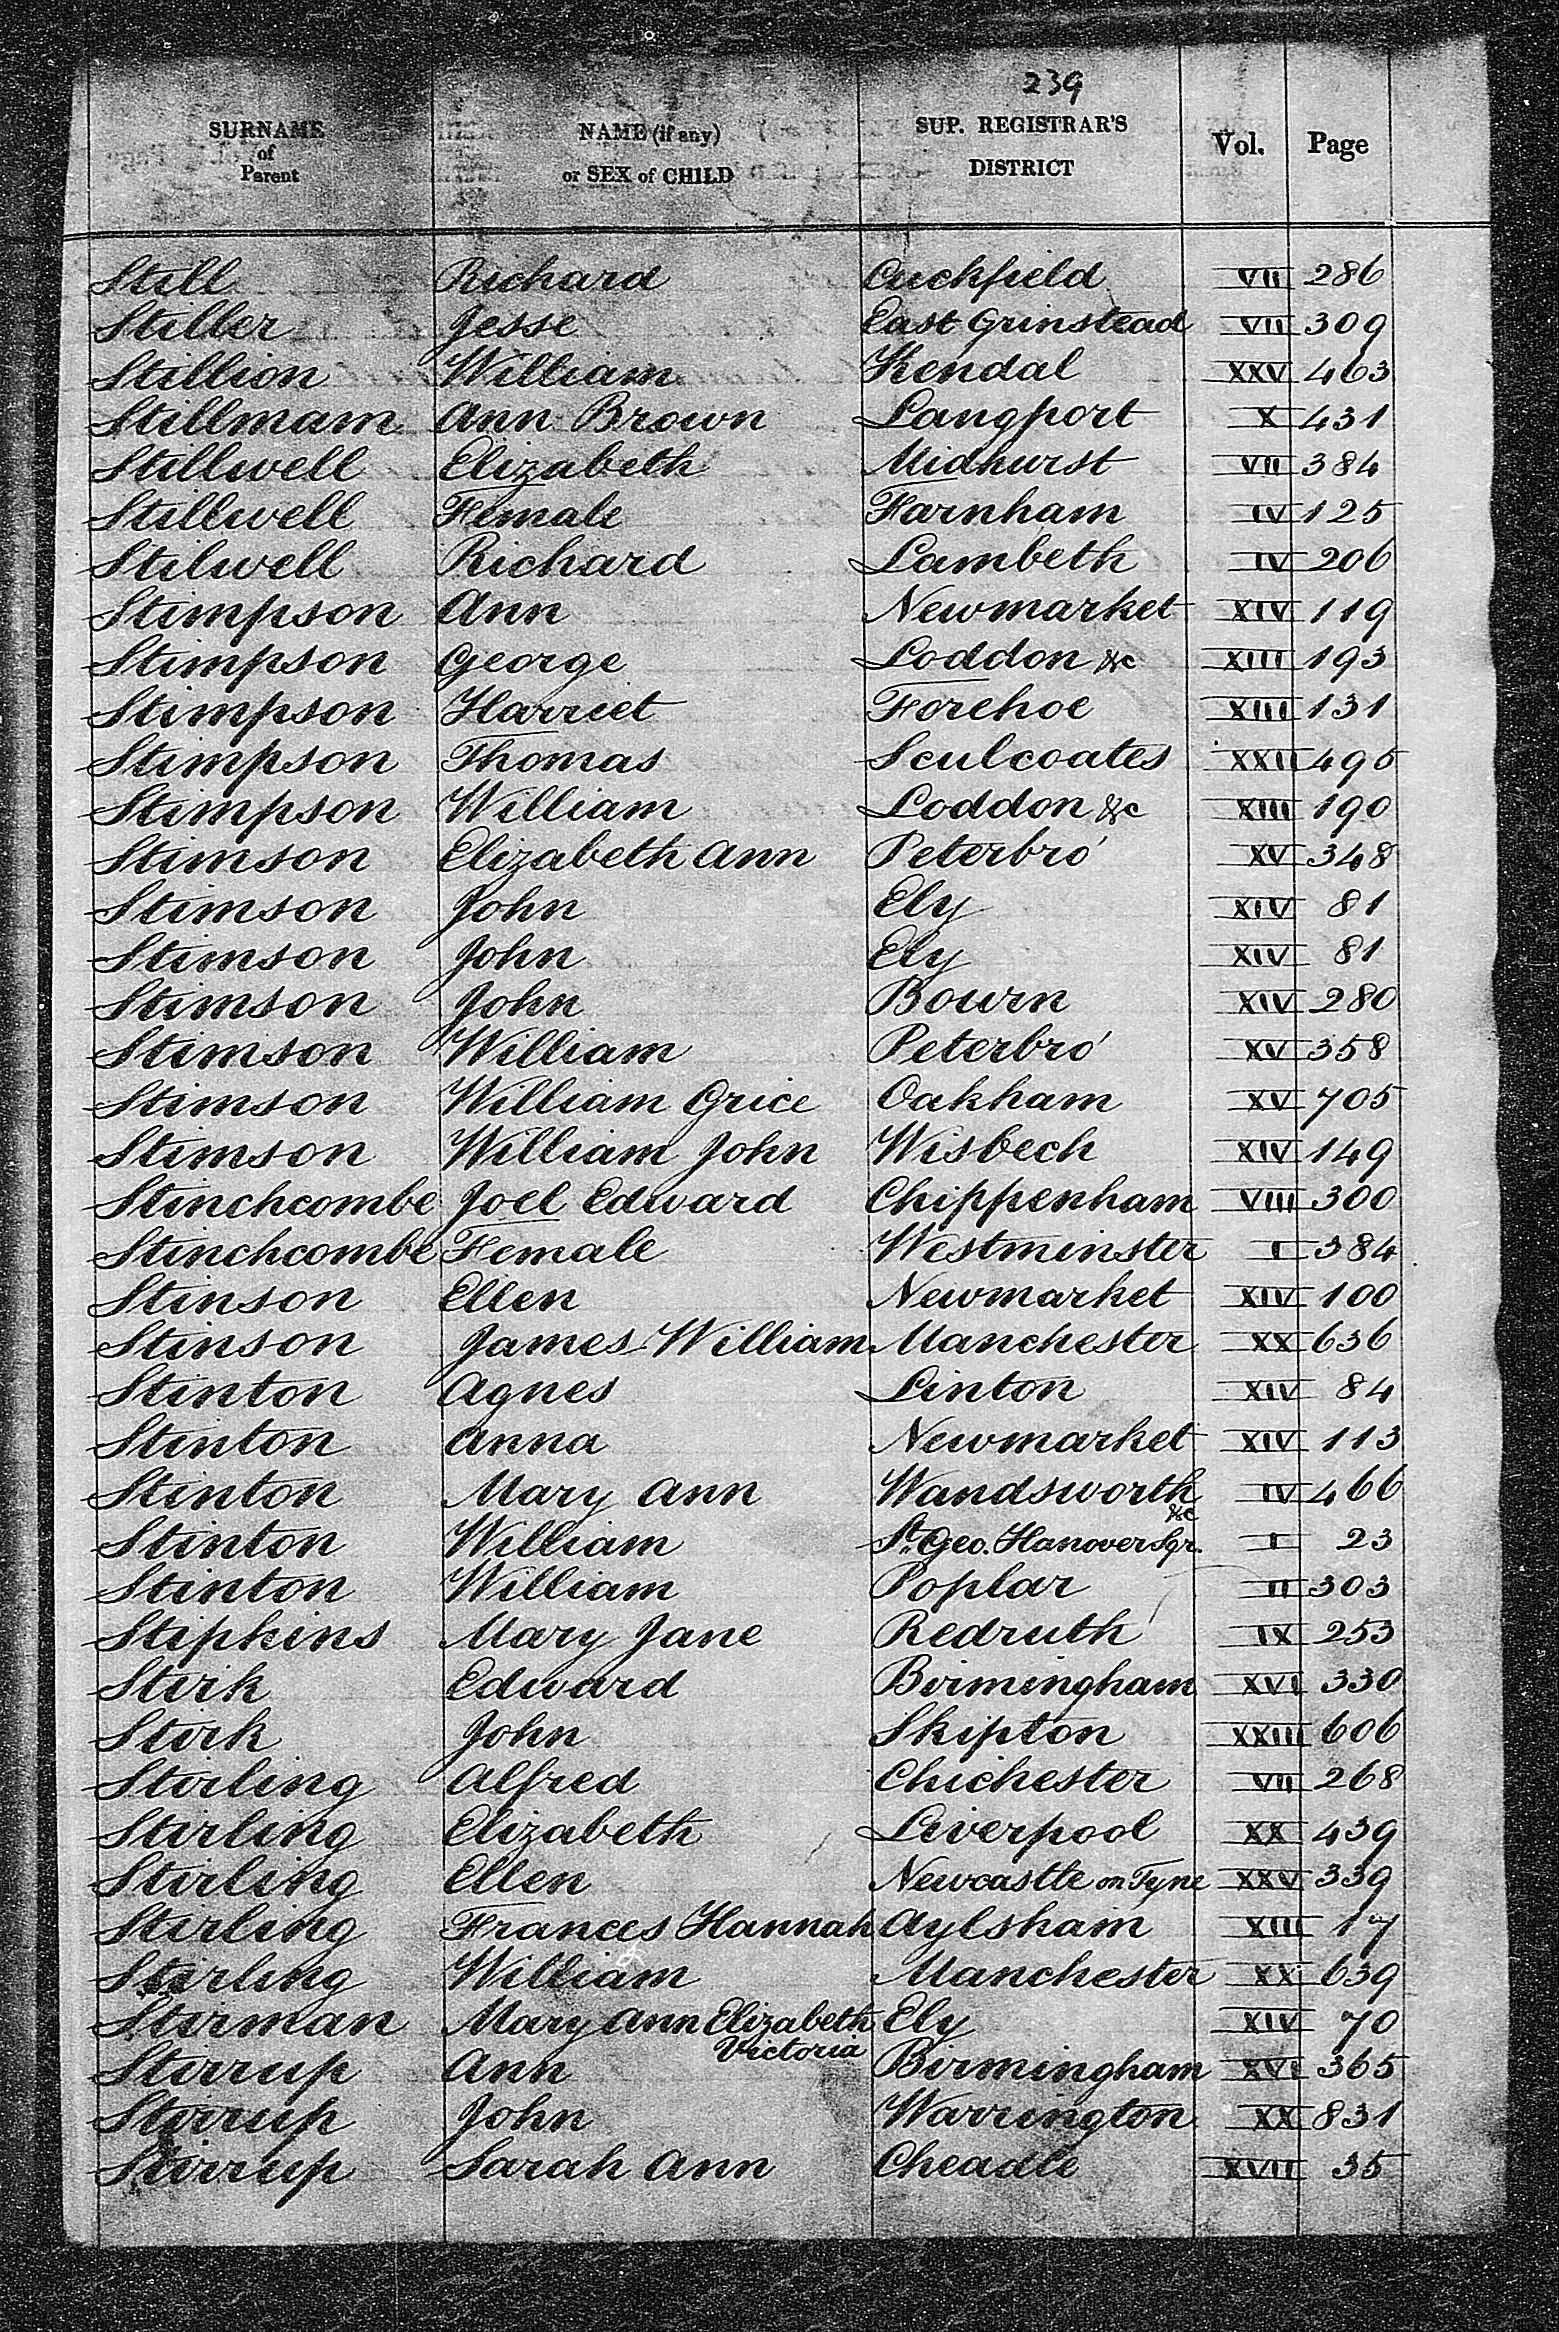 239
SURNAME of Parent NAME (if any) or SEX of CHILD SUP. REGISTRAR'S DISTRICT Vol. Page
Still Richard Cuckfield VII 286
Stiller Jesse East Grinstead VII 309
Stillion William Kendal XXV 463
Stillmam Ann Brown Langport X 431
Stillwell Elizabeth Midhurst VII 384
Stillwell Female Farnham IV 125
Stilwell Richard Lambeth IV 206
Stimpson Ann Newmarket XIV 119
Stimpson George Loddon &c XIII 193
Stimpson Harriet Forehoe XIII 131
Stimpson Thomas Sculcoates XXII 495
Stimpson William Loddon &c XIII 190
Stimson Elizabeth Ann Peterbro' XV 348
Stimson John Ely XIV 81
Stimson John Ely XIV 81
Stimson John Bourn XIV 280
Stimson William Peterbro' XV 358
Stimson William Grice Oakham XV 705
Stimson William John Wisbech XIV 149
Stinchcombe Joel Edward Chippenham VIII 300
Stinchcombe Female Westminster I 384
Stinson Ellen Newmarket XIV 100
Stinson James William Manchester XX 636
Stinton Agnes Linton XIV 84
Stinton Anna Newmarket XIV 113
Stinton Mary Ann Wandsworth &c IV 466
Stinton William St. Geo. Hanover Sqr. I 23
Stinton William Poplar II 303
Stipkins Mary Jane Redruth IX 253
Stirk Edward Birmingham XVI 330
Stirk John Skipton XXIII 606
Stirling Alfred Chichester VII 268
Stirling Elizabeth Liverpool XX 439
Stirling Ellen Newcastle on Tyne XXV 339
Stirling Frances Hannah Aylsham XIII 17
Stirling William Manchester XX 639
Stirman Mary Ann Elizabeth Victoria Ely XIV 70
Stirrup Ann Birmingham XVI 365
Stirrup John Warrington XX 831
Stirrup Sarah Ann Cheadle XVII 35